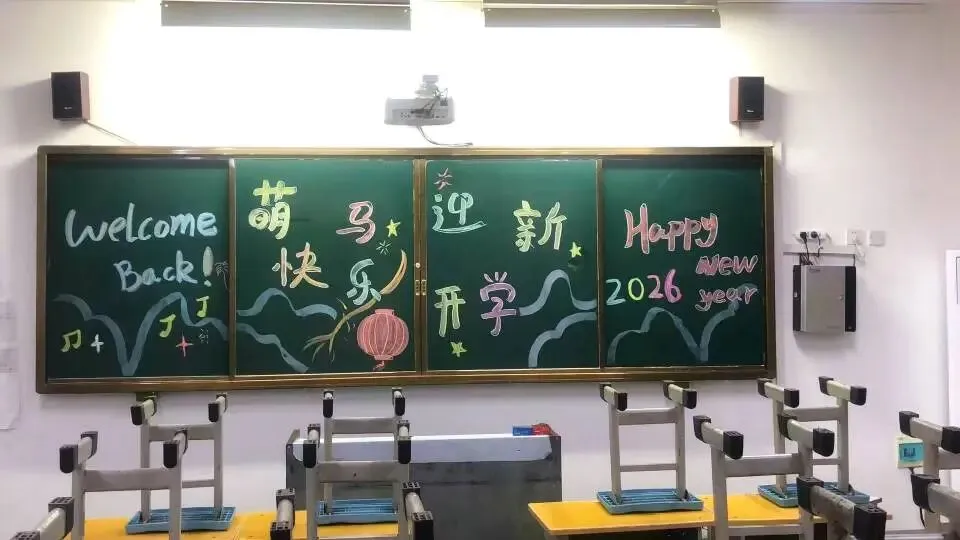 Welcome
Back!
萌马
快乐
迎新
开学
Happy
New
2026 year